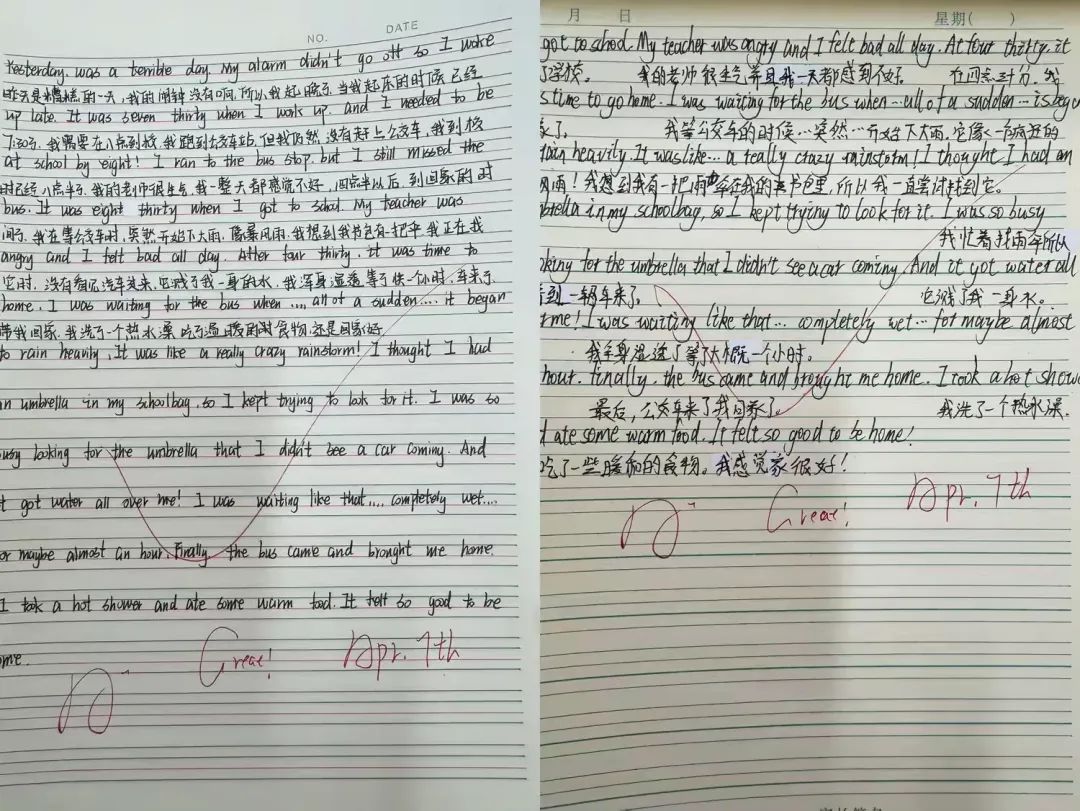 NO.
DATE
Yesterday. was a terrible day. My alarm didn't go off so I woke
昨天是糟糕的一天，我的闹钟没有响，所以我起晚了，当我起床的时候已经
up late. It was seven thirty when I work up. and I needed to be
7:30了，我需要在八点到校，我跑到公交车站，但我仍然没有赶上公交车，我到校
at school by eight! I ran to the bus stop. but I still missed the
时已经八点半了，我的老师很生气，我一整天都感觉不好，四点半以后，到回家的时
bus. It was eight thirty when I got to school. My teacher was
间了，我在等公交车时，突然开始下大雨，像暴风雨，我想到我书包有一把伞，我正在找
angry and I felt bad all day. After four thirty. it was time to
它时，没有看见汽车过来，它溅了我一身的水，我浑身湿透等了快一个小时，车来了
home. I was waiting for the bus when .... all of a sudden.... it began
带我回家，我洗了一个热水澡，吃了温暖的食物，还是回家好
to rain heavily, It was like a really crazy rainstorm! I thought I had
an umbrella in my schoolbag, so I kept trying to look for it. I was so
busy looking for the umbrella that I didn't see a car coming. And
it got water all over me! I was waiting like that.... completely wet....
for maybe almost an hour. Finally the bus came and brought me home.
I took a hot shower and ate some warm food. It felt so good to be
home.
Great!
Apr. 7th
月 日 星期( )
got to school. My teacher was angry and I felt bad all day. At four thirty. it
了学校。 我的老师很生气并且我一天都感到不好。 在四点三十分，我
s time to go home. I was waiting for the bus when...all of a sudden...is began
家了。 我等公交车的时候...突然...开始下大雨，它像一个疯狂的
rain heavily. It was like... a really crazy rainstorm! I thought I had an
风雨！我想到我有一把雨伞在我的书包里，所以我一直尝试找到它。
mbrella in my schoolbag, so I kept trying to look for it. I was so busy
我忙着找雨伞所以
oking for the umbrella that I didn't see a car coming. And it got water all
看到一辆车来了。 它溅了我一身水。
r me! I was waiting like that... completely wet... for maybe almost
我全身湿透了等了大概一个小时。
hour. finally. the bus came and brought me home. I took a hot showe
最后，公交车来了我回家了。 我洗了一个热水澡.
d ate some warm food. It felt so good to be home!
吃了一些暖和的食物。我感觉家很好！
Great!
Apr. 7th